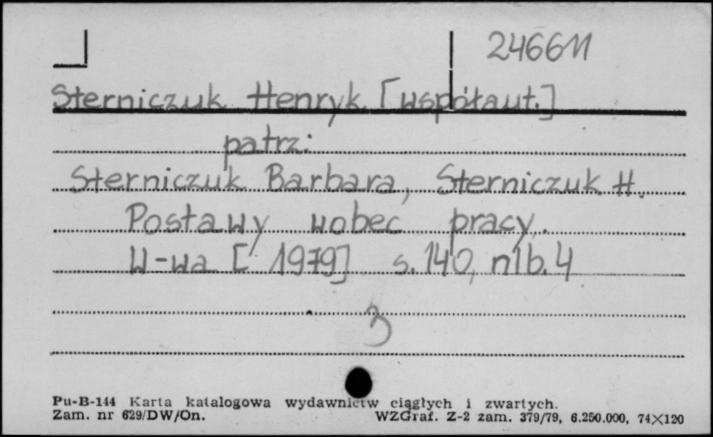 246611
Sterniczuk Henryk [współaut.]
patrz:
Sterniczuk Barbara, Sterniczuk H.
Postawy wobec pracy.
W-wa [1979] s. 140, nlb. 4
3
Pu-B-144 Karta katalogowa wydawnictw ciągłych i zwartych.
Zam. nr 629/DW/On. WZGraf. Z-2 zam. 379/79, 6.250.000, 74×120